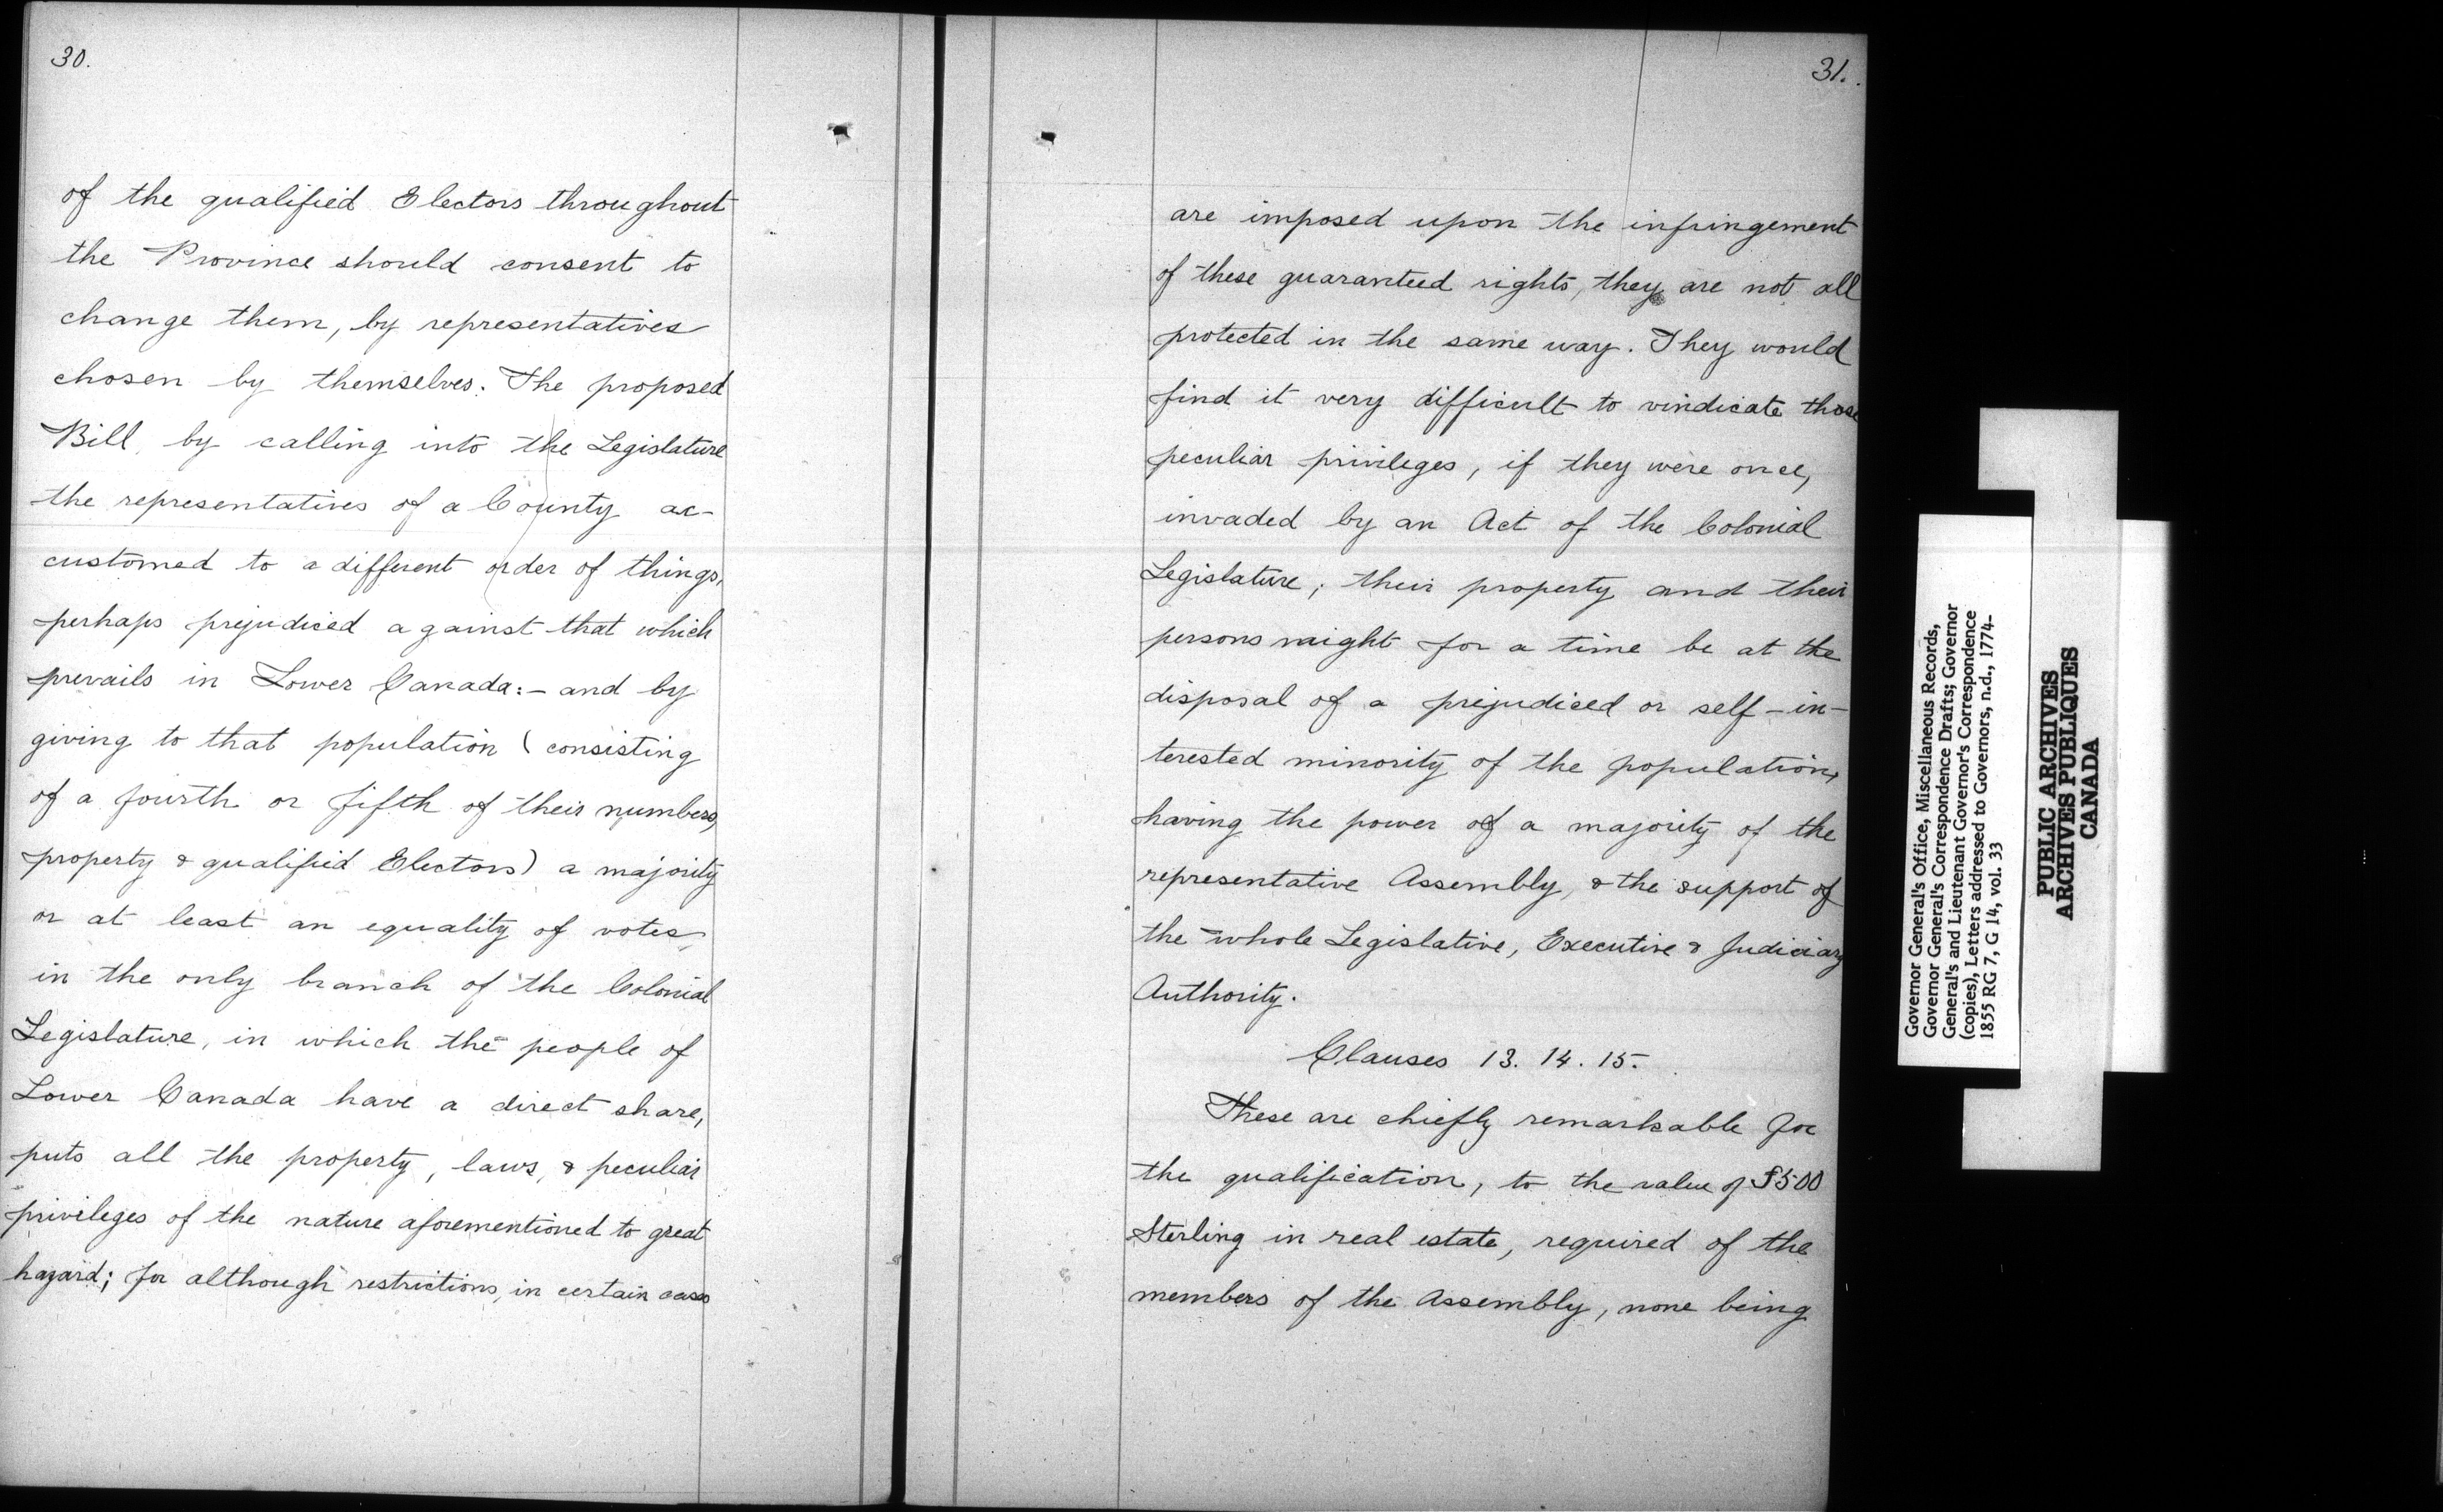 30.
of the qualified Electors throughout
the Province should consent to
change them, by representatives
chosen by themselves. The proposed
Bill, by calling into the Legislature
the representatives of a County ac-
customed to a different order of things,
perhaps prejudiced against that which
prevails in Lower Canada:- and by
giving to that population (consisting
of a fourth or fifth of their numbers,
property & qualified Electors) a majority
or at least an equality of votes,
in the only branch of the Colonial
Legislature, in which the people of
Lower Canada have a direct share,
puts all the property, laws, & peculiar
privileges of the nature aforementioned to great
hazard; for although restrictions, in certain cases
31.
are imposed upon the infringement
of these guaranteed rights, they are not all
protected in the same way. They would
find it very difficult to vindicate those
peculiar privileges, if they were once,
invaded by an Act of the Colonial
Legislature; their property and their
persons might for a time be at the
disposal of a prejudiced or self-in-
terested minority of the population,
having the power of a majority of the
representative Assembly, & the support of
the whole Legislative, Executive & Judiciary
Authority.
Clauses 13. 14. 15.
These are chiefly remarkable for
the qualification, to the value of £500
Sterling in real estate, required of the
members of the Assembly, none being
Governor General's Office, Miscellaneous Records,
Governor General's Correspondence Drafts; Governor
General's and Lieutenant Governor's Correspondence
(copies), Letters addressed to Governors, n.d., 1774-
1855 RG 7, G 14, vol. 33
PUBLIC ARCHIVES
ARCHIVES PUBLIQUES
CANADA